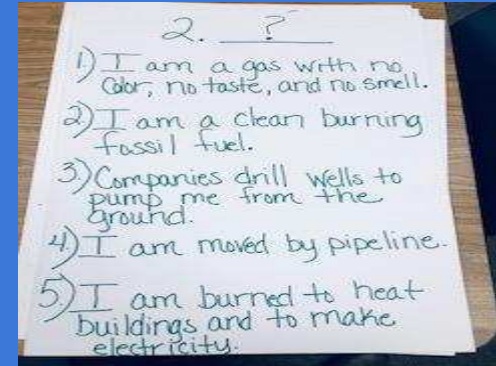 2. ?
1) I am a gas with no
Color, no taste, and no smell.
2) I am a clean burning
fossil fuel.
3) Companies drill wells to
pump me from the
ground.
4) I am moved by pipeline.
5.) I am burned to heat
buildings and to make
electricity.